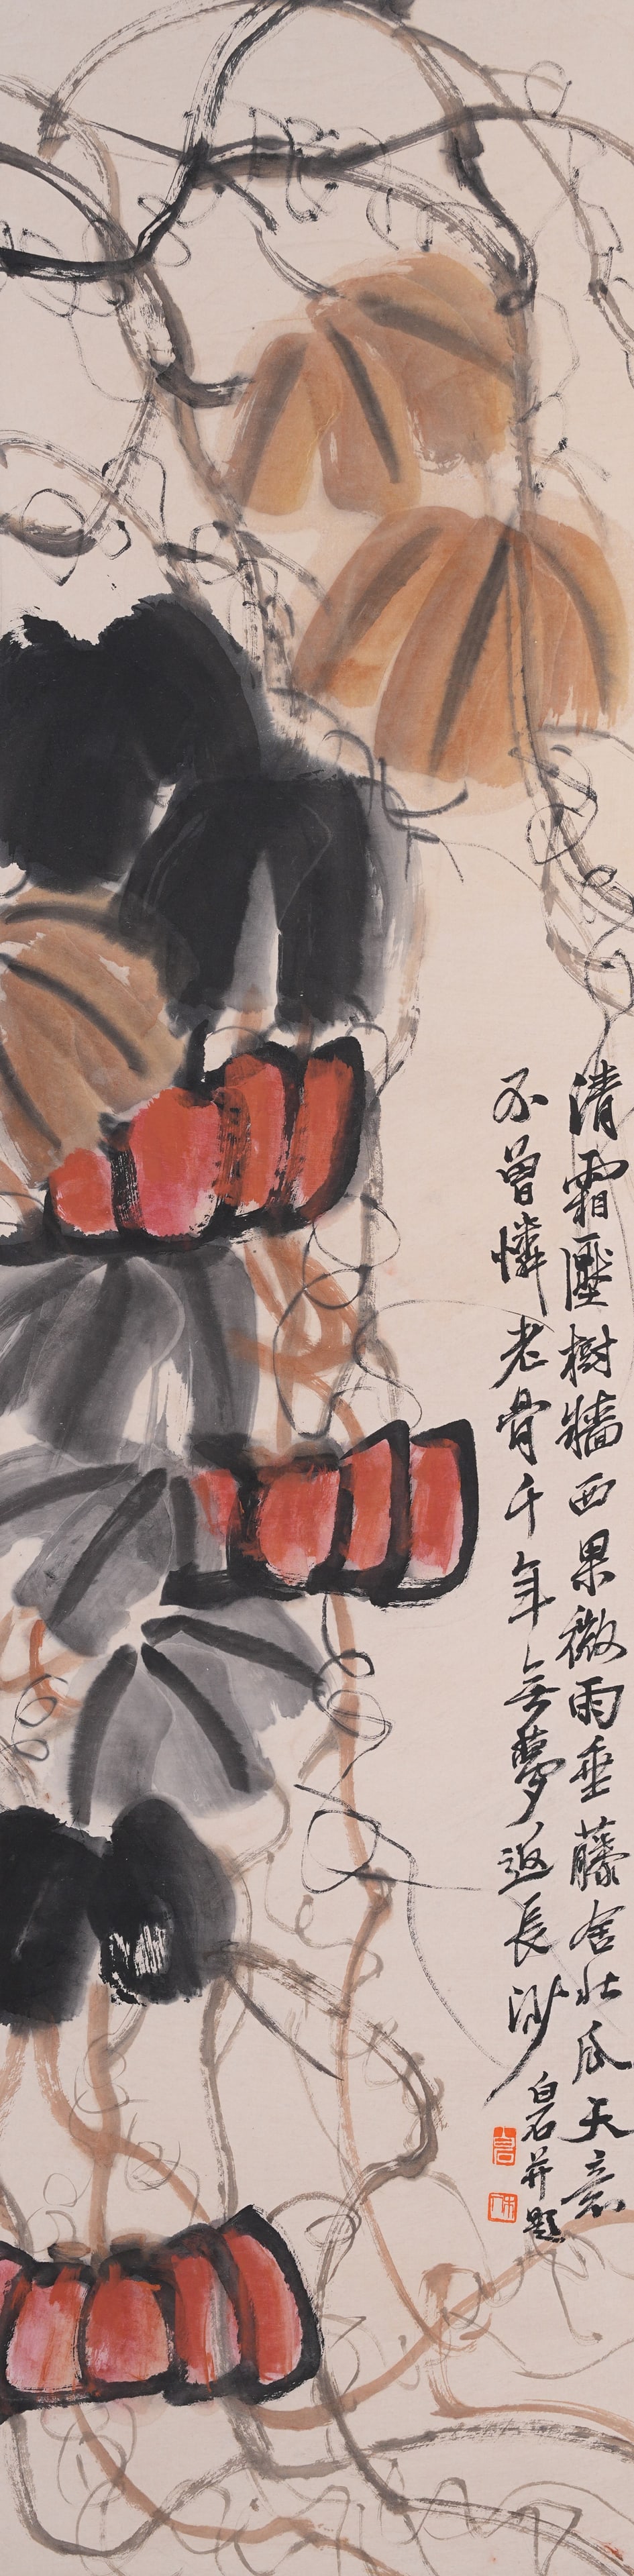 清霜壓樹牆西果微雨垂藤舍北瓜天意
不曾憐老骨千年無夢返長沙
白石并題